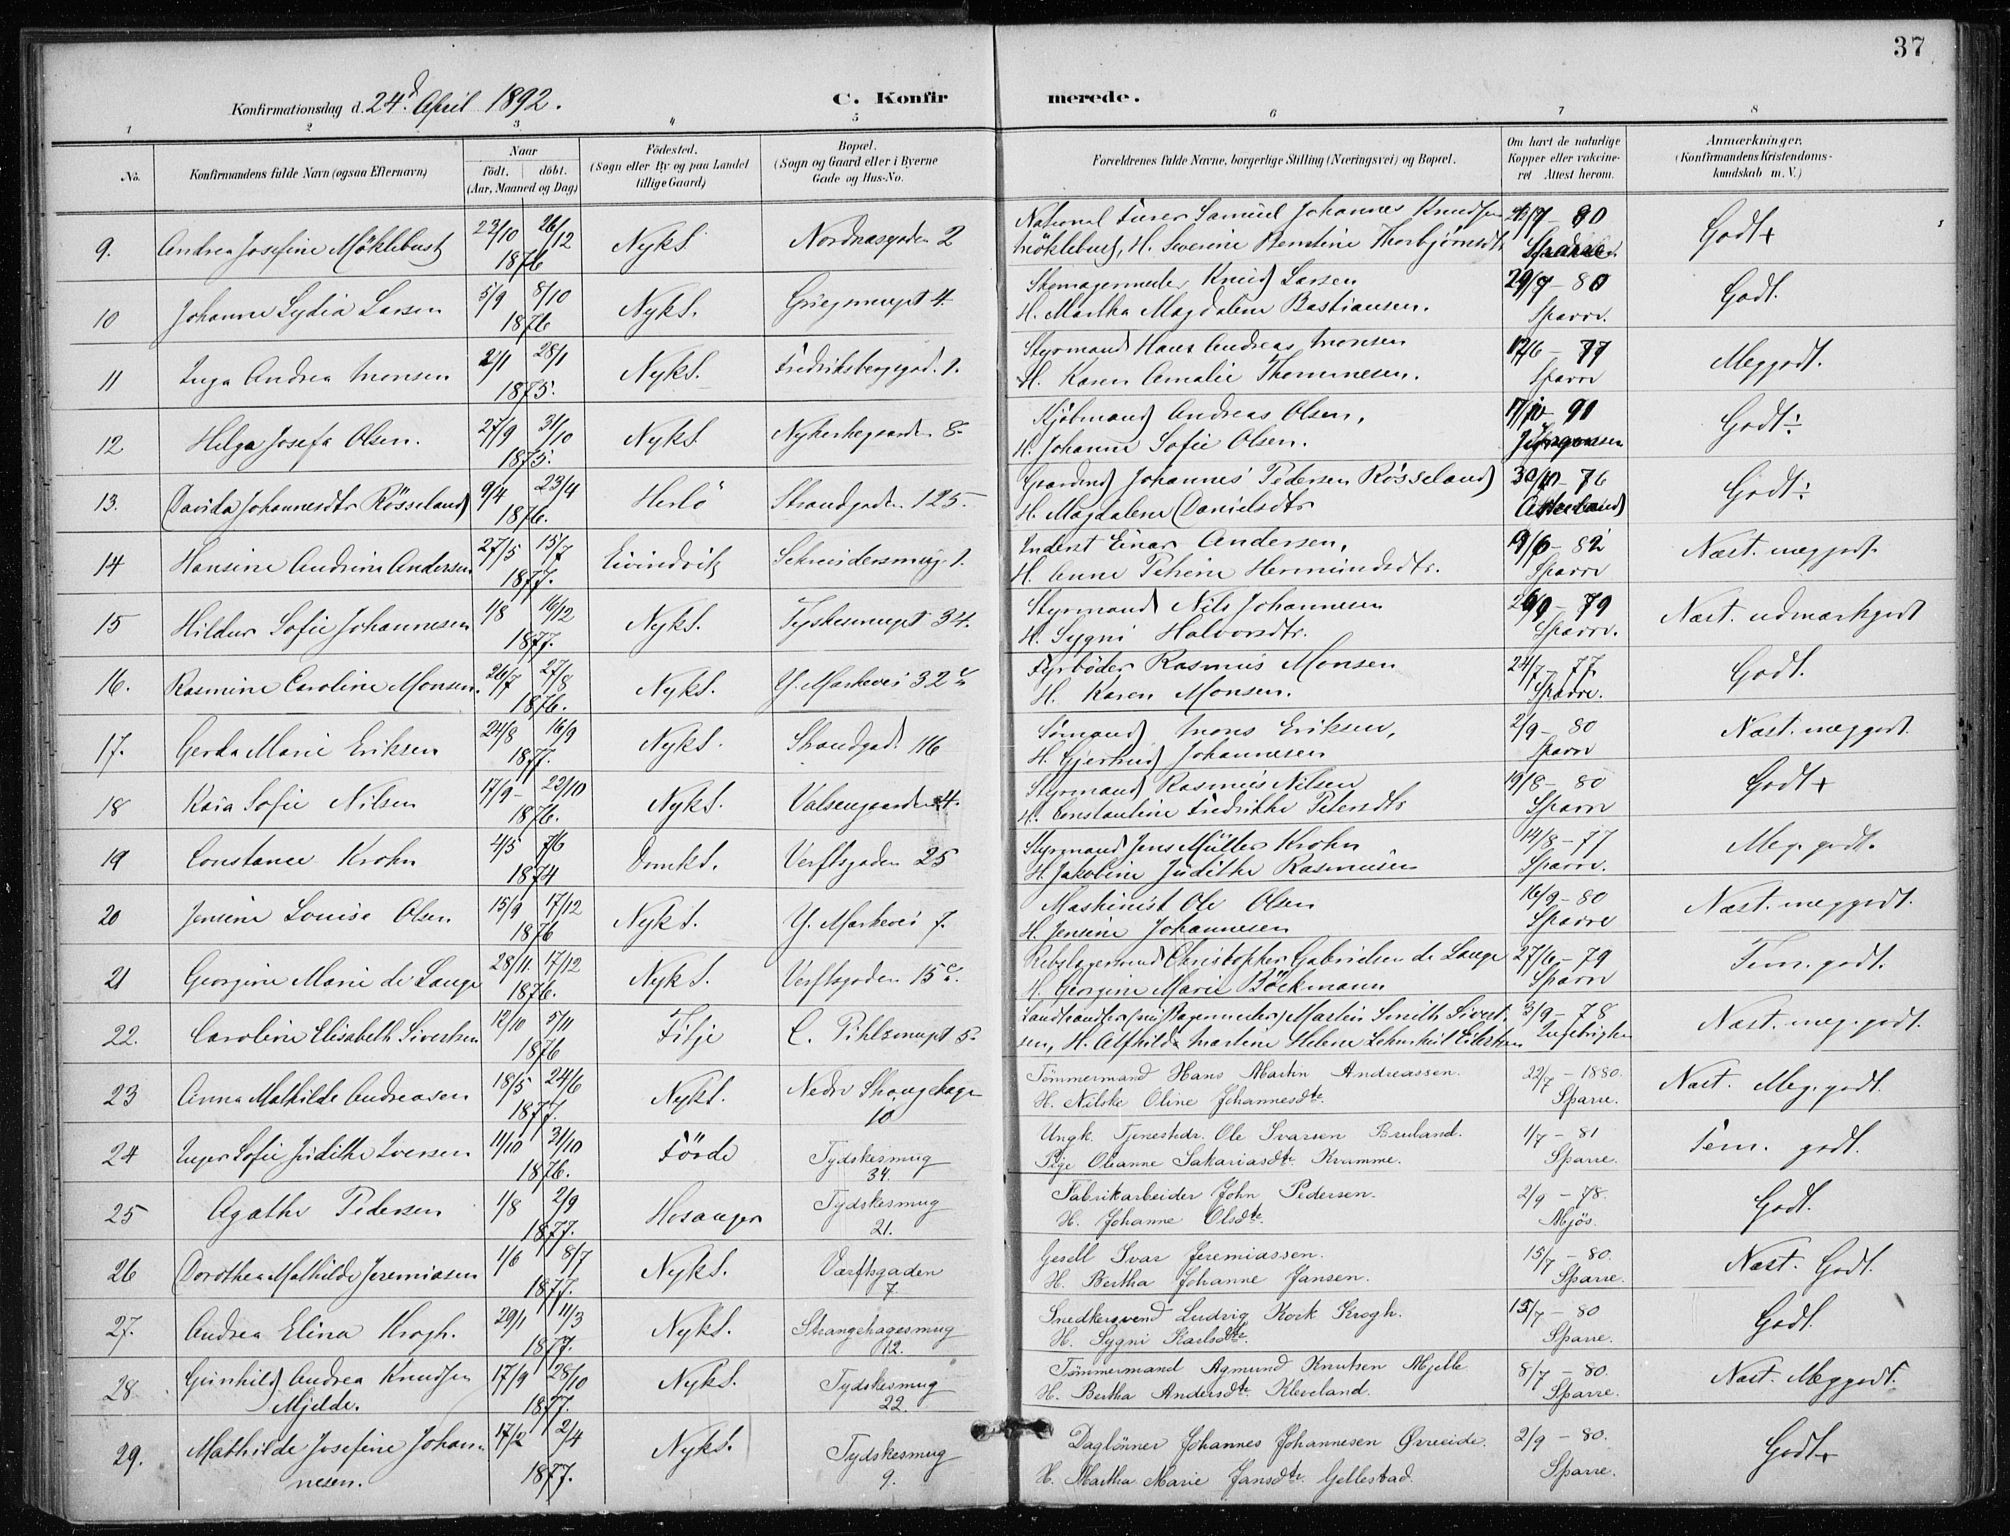 37
Konfirmationsdag d. 24d April 1892.
C. Konfirmerede.
1 2 3 4 5 6 7 8
No.
Konfirmandens fulde Navn (ogsaa Efternavn)
Naar
födt. döbt.
(Aar, Maaned og Dag)
Födested.
(Sogn eller By og paa Landet
tillige Gaard)
Bopæl.
(Sogn og Gaard eller i Byerne
Gade og Hus-No.
Forældrenes fulde Navne, borgerlige Stilling (Næringsvei) og Bopæl.
Om havt de naturlige
Kopper eller vakcine-
ret Attest herom.
Anmærkninger.
(Konfirmandens Kristendoms-
kundskab m. V.)
9. Andrea Josefine Möklebust 22/10 26/12 1876 NykS. Nordnæsgaden 2
National Furer Samuel Johannes Knudsen
Möklebust, H. Severine Berntine Thorbjørnsdtr
80 Sparre. Godt+
10 Johanne Lydia Larsen 5/9 8/10 1876 NykS. 4.
Skomagermester Knud Larsen
H. Martha Magdalene Bastiansen.
29/7 - 80 Sparre. Godt.
11 Inga Andrea Monsen 2/1 28/1 1875. NykS. Fredriksbergsgad. 1.
Styrmand Hans Andreas Monsen
H. Karen Amalie Thommesen.
77 Sparre Meggodt.
12 Helga Josefa Olsen. 27/9 31/10 1875. NykS Nykirkegaarden 8.
Kjöbmand Andreas Olsen,
H. Johanne Sofie Olsen.
17/10 - 91 Jörgensen Godt÷
13. Davida Johannesdtr Rösseland 9/4 23/4 1876. Herlö Strandgaden 125.
Gaardmd Johannes Pedersen Rösseland
H. Magdalene Danielsdtr
30/10 - 76 Godt÷
14 Hansine Andrine Andersen 27/5 15/7 1877. Eivindvik 1.
Inderst Einar Andersen,
H. Anne Petrine Hermundsdtr.
9/6 - 82 Sparre Næst. meggodt.
15 Hildur Sofie Johannesen 1/8 16/12 1877. NykS. Tyskesmuget 34.
Styrmand Nils Johannesen
H. Sygni Halvorsdtr.
79 Sparre. Næst. udmærkgodt
16. Rasmine Caroline Monsen. 26/7 27/8 1876. NykS. Y. Markevei 32
Fyrböder Rasmus Monsen
H. Karen Monsen.
24/7 - 77. Sparre. Godt.
17. Gerda Marie Eriksen 24/8 16/9 1877. NykS. Strandgad. 116
Sömand Mons Eriksen,
H. Gjertrud Johannesen
2/9 - 80 Sparre Næst. meggodt.
18 Kaia Sofie Nilsen 17/9 - 22/10 1876. NykS. 4.
Styrmand Rasmus Nilsen
H. Constantine Fredrikke Petersdtr
19/8 - 80 Sparre Godt+
19 Constance Krohn 4/5 7/6 1874 DomkS. Verftsgaden 25
Styrmand Jens Müller Krohn
H. Jakobine Judithe Rasmusen
14/8 - 77 Sparre. Meg. godt.
20 Jensine Louise Olsen 15/9 17/12 1876 NykS. Y. Markevei 7.
Maskinist Ole Olsen
H. Jensine Johannesen
16/9 - 80 Sparre Næst. meggodt.
21 Georgine Marie de Lange 28/11. 17/12 1876. NykS. Verftsgaden 15
Christopher Gabrielsen de Lange
H. Georgine Marie Böckmann
27/6 - 79 Sparre Tem. godt.
22. Caroline Elisabeth Sivertsen 12/10 5/11 1876 Fitje C. Pihlsmuget 5.
Landhandler (nu Bagermester) Martin Smith Sivert-
sen, H. Alfhilde Martine Helene
3/9 - 78 Næst. meg. godt.
23 Anna Mathilde Andreasen 18/5 24/6 1877. NykS. Nedre Strangehage
10
Tömmermand Hans Martin Andreassen.
H. Nilske Oline Johannesdtr.
22/7 - 1880. Sparre. Næst. Meg. godt.
24 Inger Sofie Judithe Iversen 11/10 31/10 1876. Förde Tydskesmug
34.
Ungk. Tjenestedr. Ole Ivarsen Bruland.
Pige Olianne Sakariasdtr Kvamme.
1/7 - 81 Sparre. Tem. godt.
25 Agathe Pedersen 1/8 2/9 1877. Hosanger Tydskesmug
21.
Fabrikarbeider John Pedersen.
H. Johanne Olsdtr.
2/9 - 78. Mjös. Godt.
26 Dorothea Mathilde Jeremiasen 1/6 8/7 1877. NykS. Værftsgaden
7.
Gesell Ivar Jeremiassen.
H. Bertha Johanne Jansen.
15/7 - 80. Sparre. Næst. Godt.
27. Andrea Elina Krogh. 29/1 11/3 1877. NykS. Strangehagesmug
12.
Snedkersvend Ludvig Kork Krogh.
H. Sygni Karlsdtr.
15/7 - 80 Sparre. Godt.
28. Gunhild Andrea Knudsen
Mjelde. 17/9 28/10 1877. NykS. Tydskesmug
22.
Tömmermand Agmund Knutsen Mjelle.
H. Bertha Andersdtr. Kleveland.
8/7 - 80. Sparre. Næst. Meggodt.
29. Mathilde Josefine Johan-
nesen. 17/2 2/4 1877. NykS. Tydskesmug
9.
Daglönner Johannes Johannesen Øvreeide.
H. Martha Marie Jansdtr. Gellestad.
2/9 - 80. Sparre. Godt+